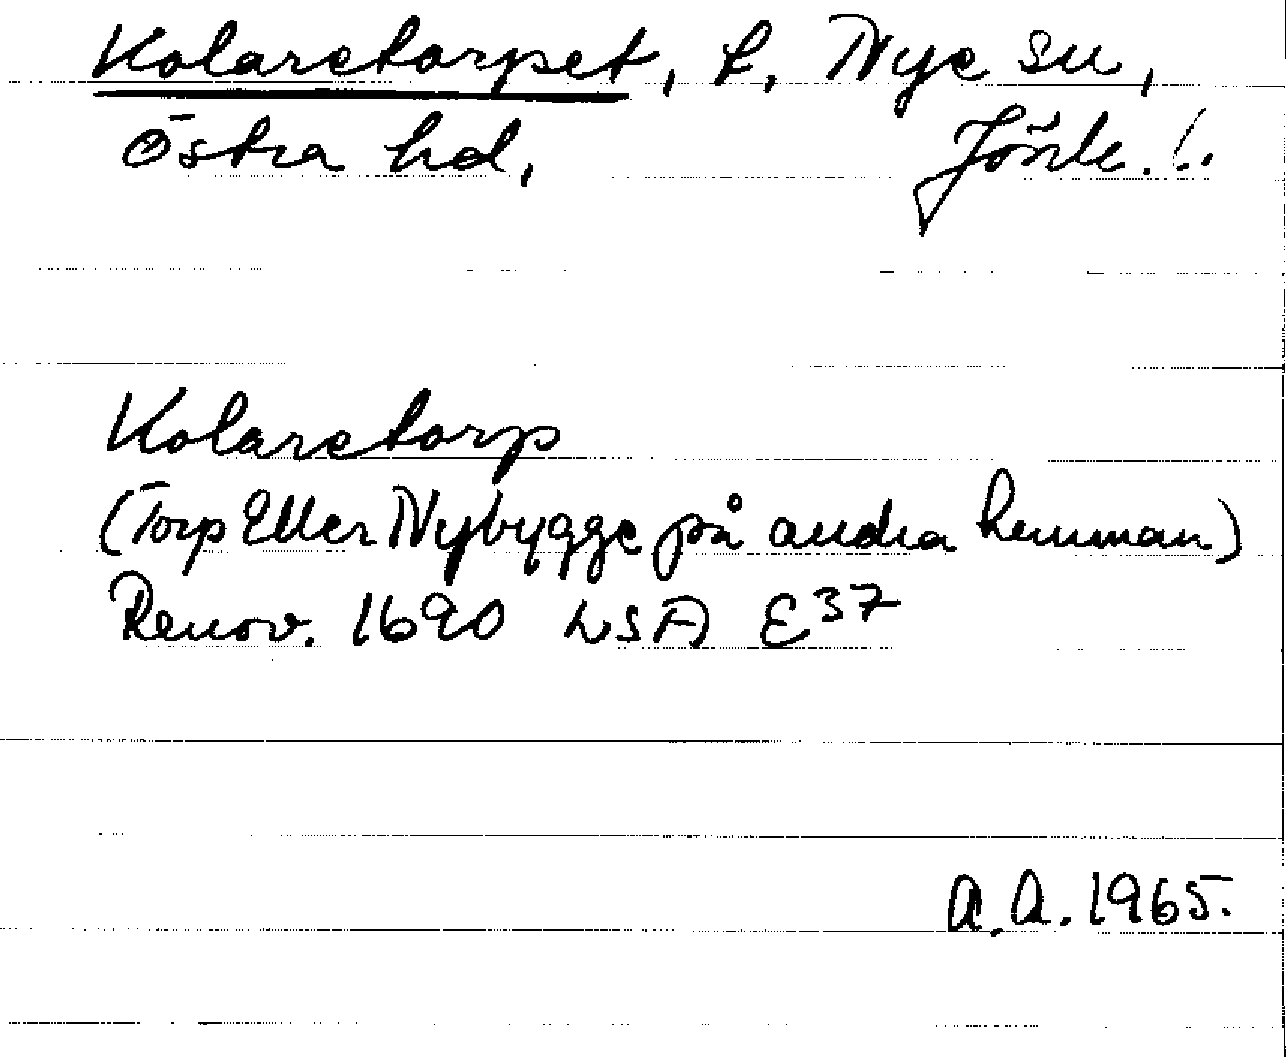 Kolaretorpet, t. Nye sn,
Östra hd, Jönk. l.
Kolaretorp
(Torp Eller Nybygge på andra hemman)
Renov. 1690 LSA E37
A.A. 1965.